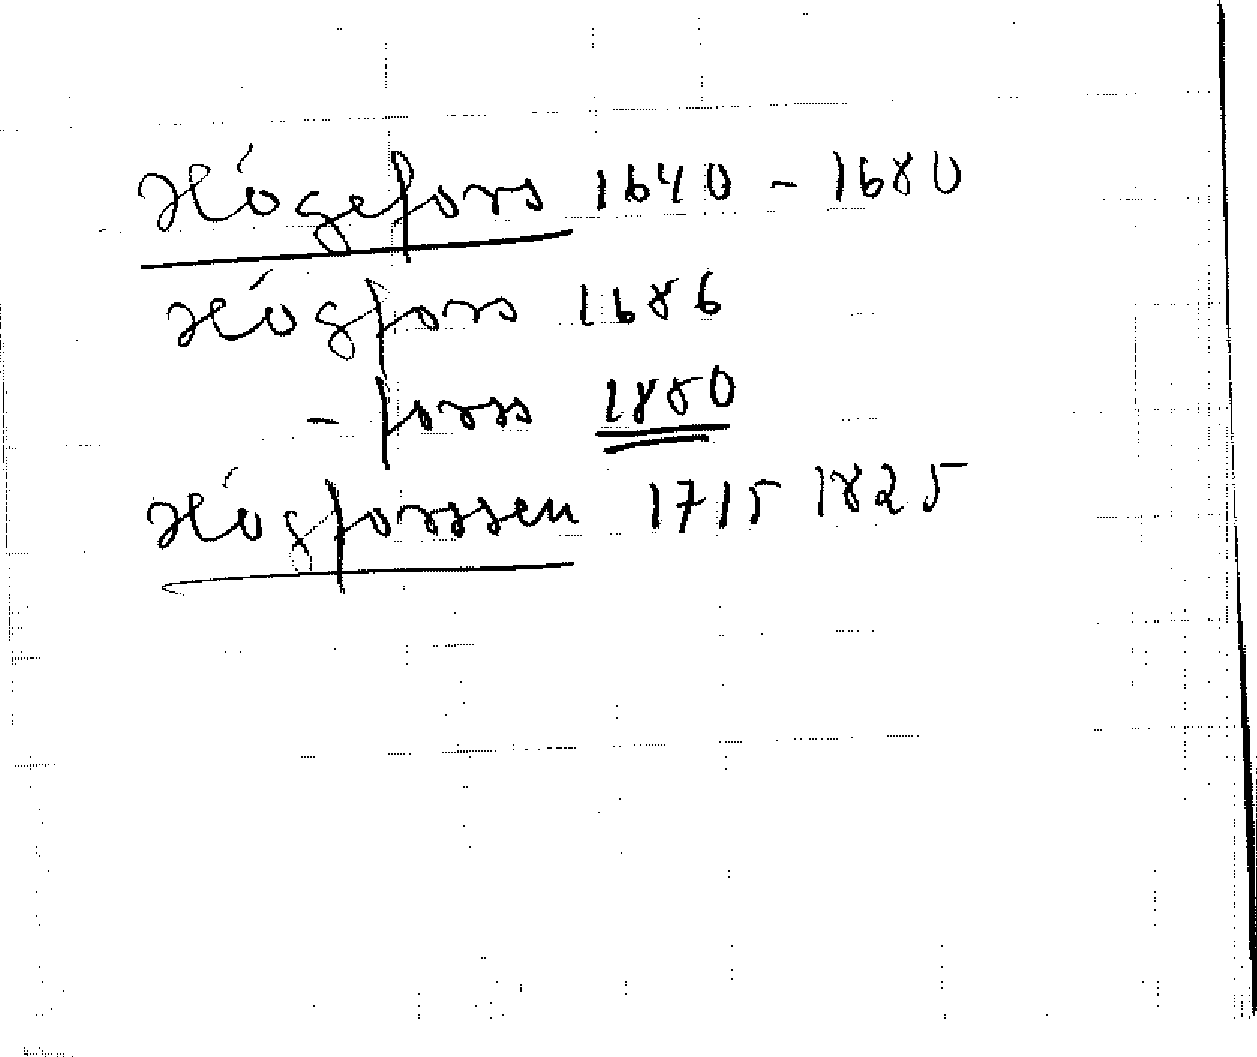 Högefors 1640 - 1680
Högfors 1686
- forss 1880
Högforssen 1715 1825